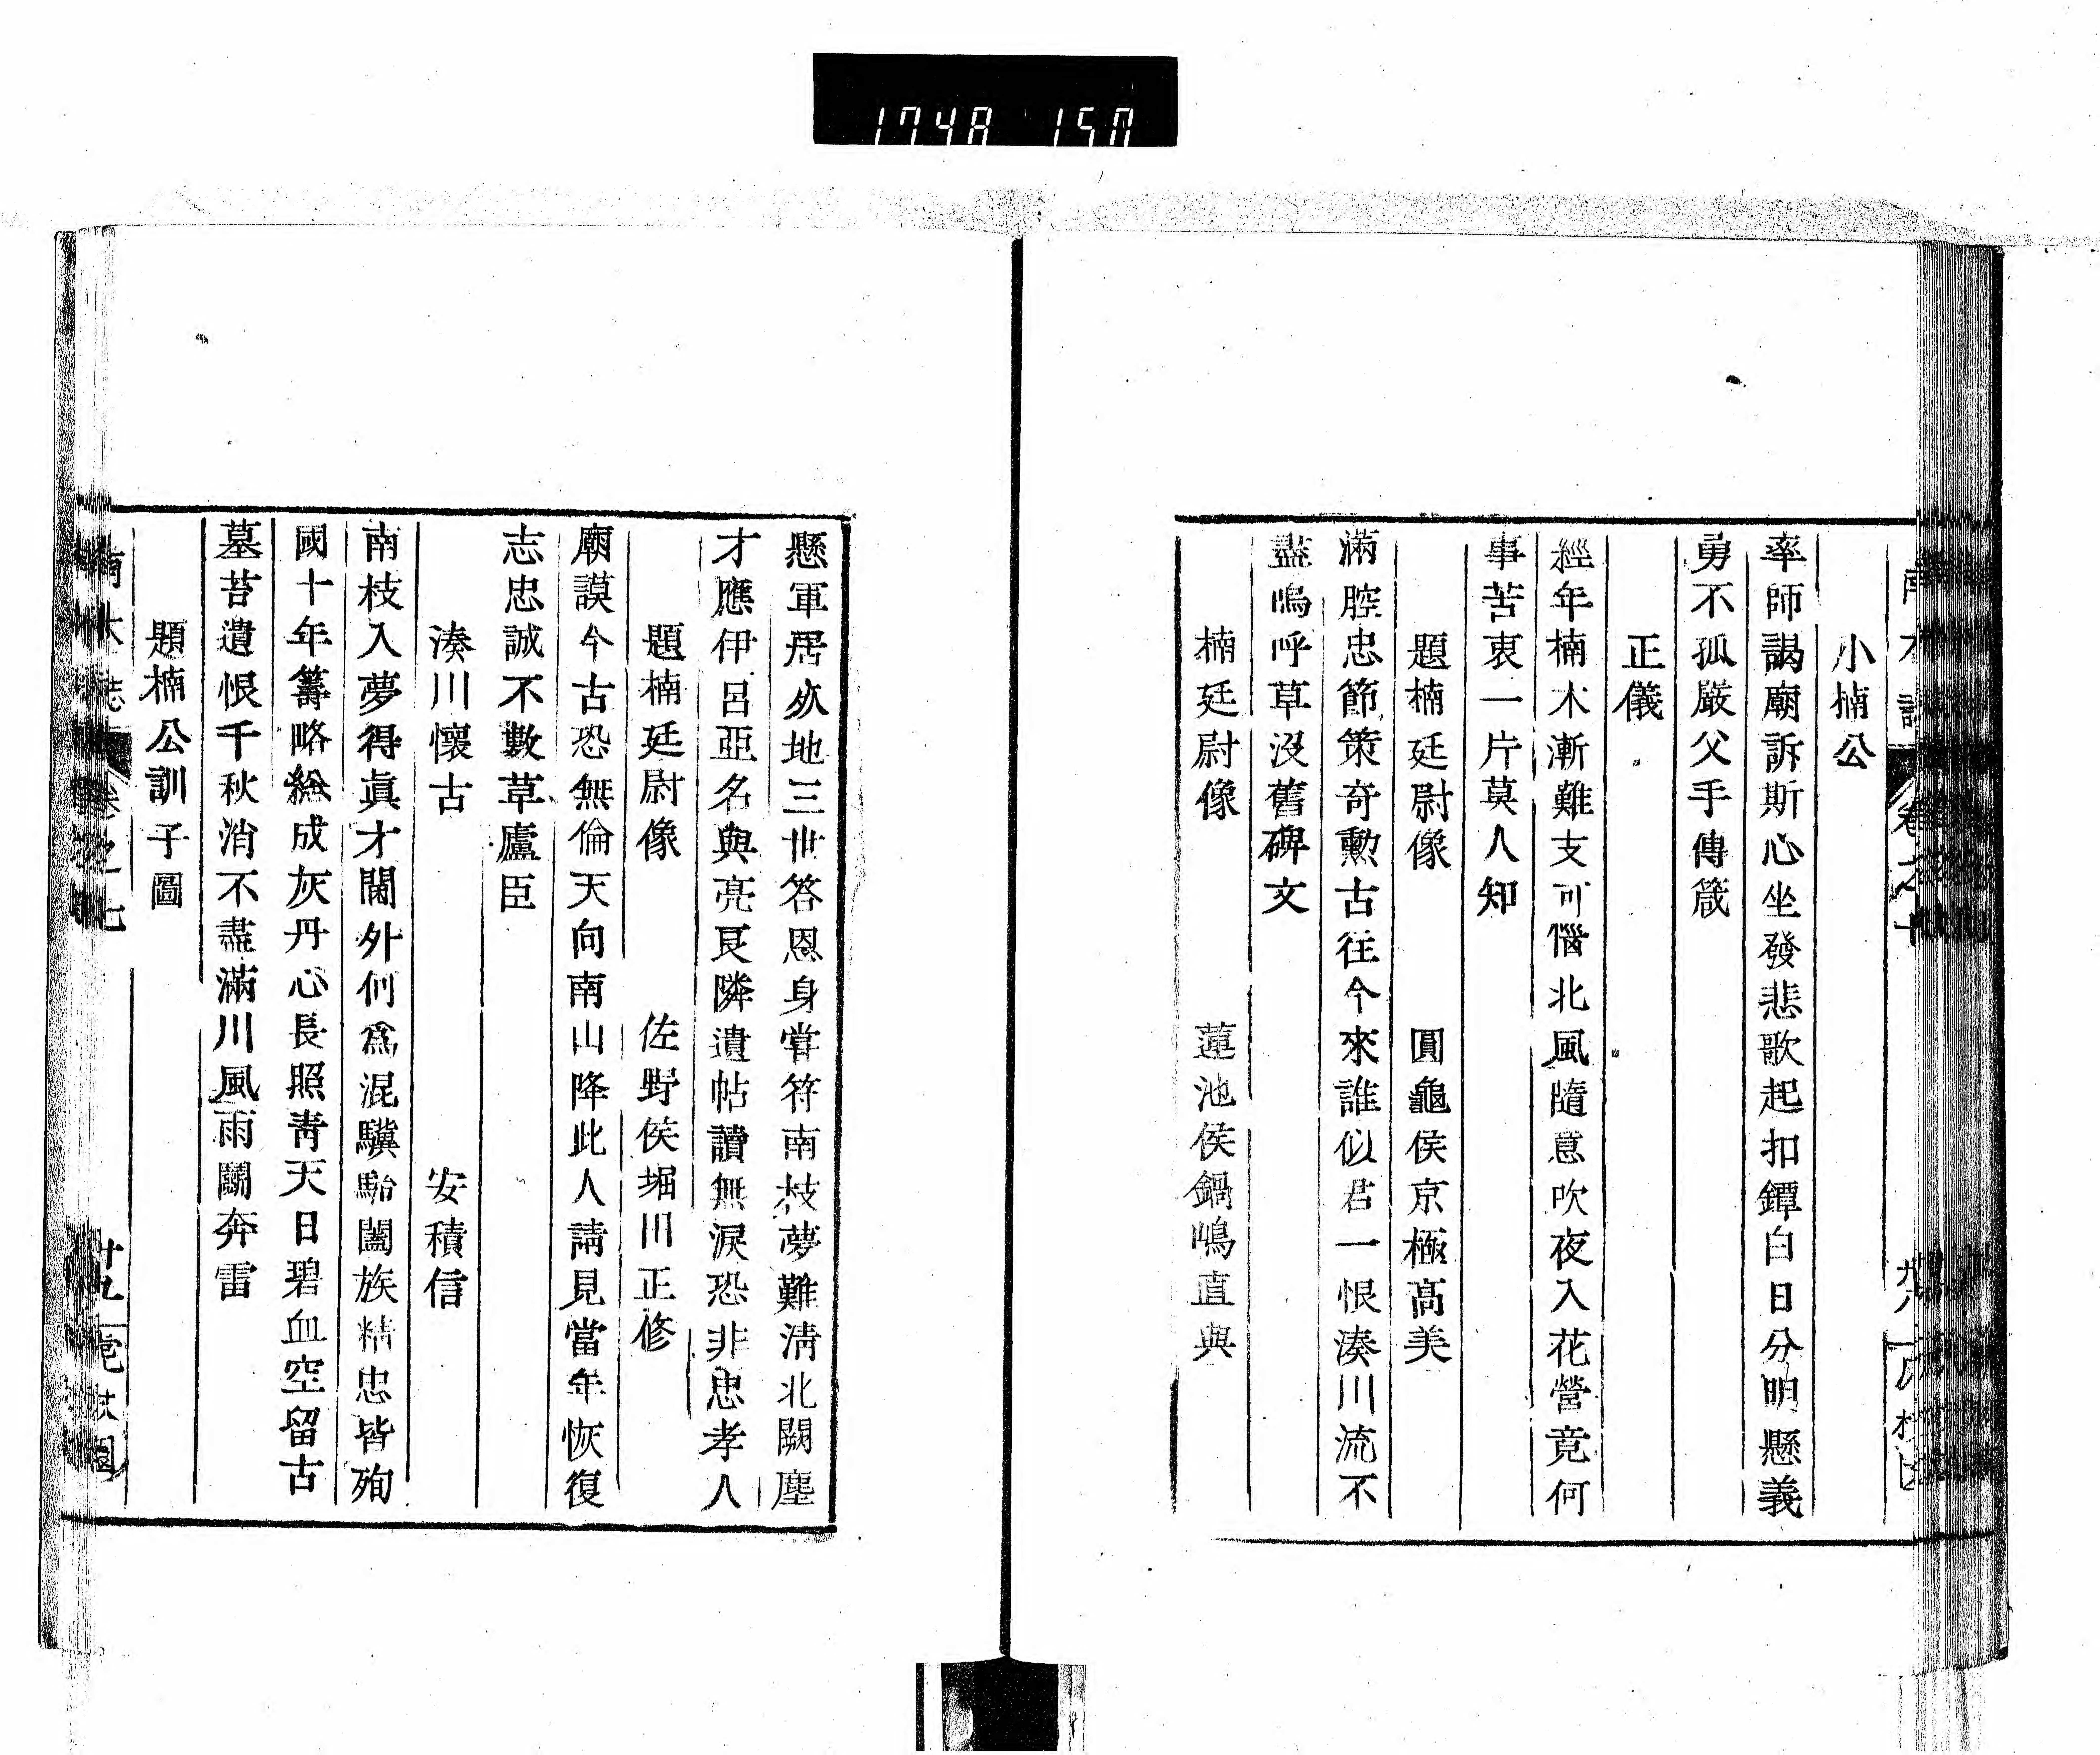 1748 150
小楠公
率師謁廟訴斯心坐發悲歌起扣鐔白日分明懸義
勇不孤嚴父手傳箴
正儀
經年楠木漸難支可惱北風隨意吹夜入花營竟何
事苦衷一片莫人知
題楠廷尉像 圓龜侯京極高美
滿腔忠節策奇勳古往今來誰似君一恨湊川流不
盡嗚呼草沒舊碑文
楠廷尉像 蓮池侯鍋嶋直與
懸軍居必地三世答恩身嘗符南枝夢難淸北闕塵
才應伊呂亞名與亮良隣遺帖讀無淚恐非忠孝人
題楠廷尉像 佐野侯堀川正修
廟謨今古恐無倫天向南山降此人請見當年恢復
志忠誠不數草廬臣
湊川懷古 安積信
南枝入夢得眞才閫外何爲混驥駘闔族精忠皆殉
國十年籌略總成灰丹心長照靑天日碧血空留古
墓苔遺恨千秋消不盡滿川風雨鬭奔雷
題楠公訓子圖
卷之七